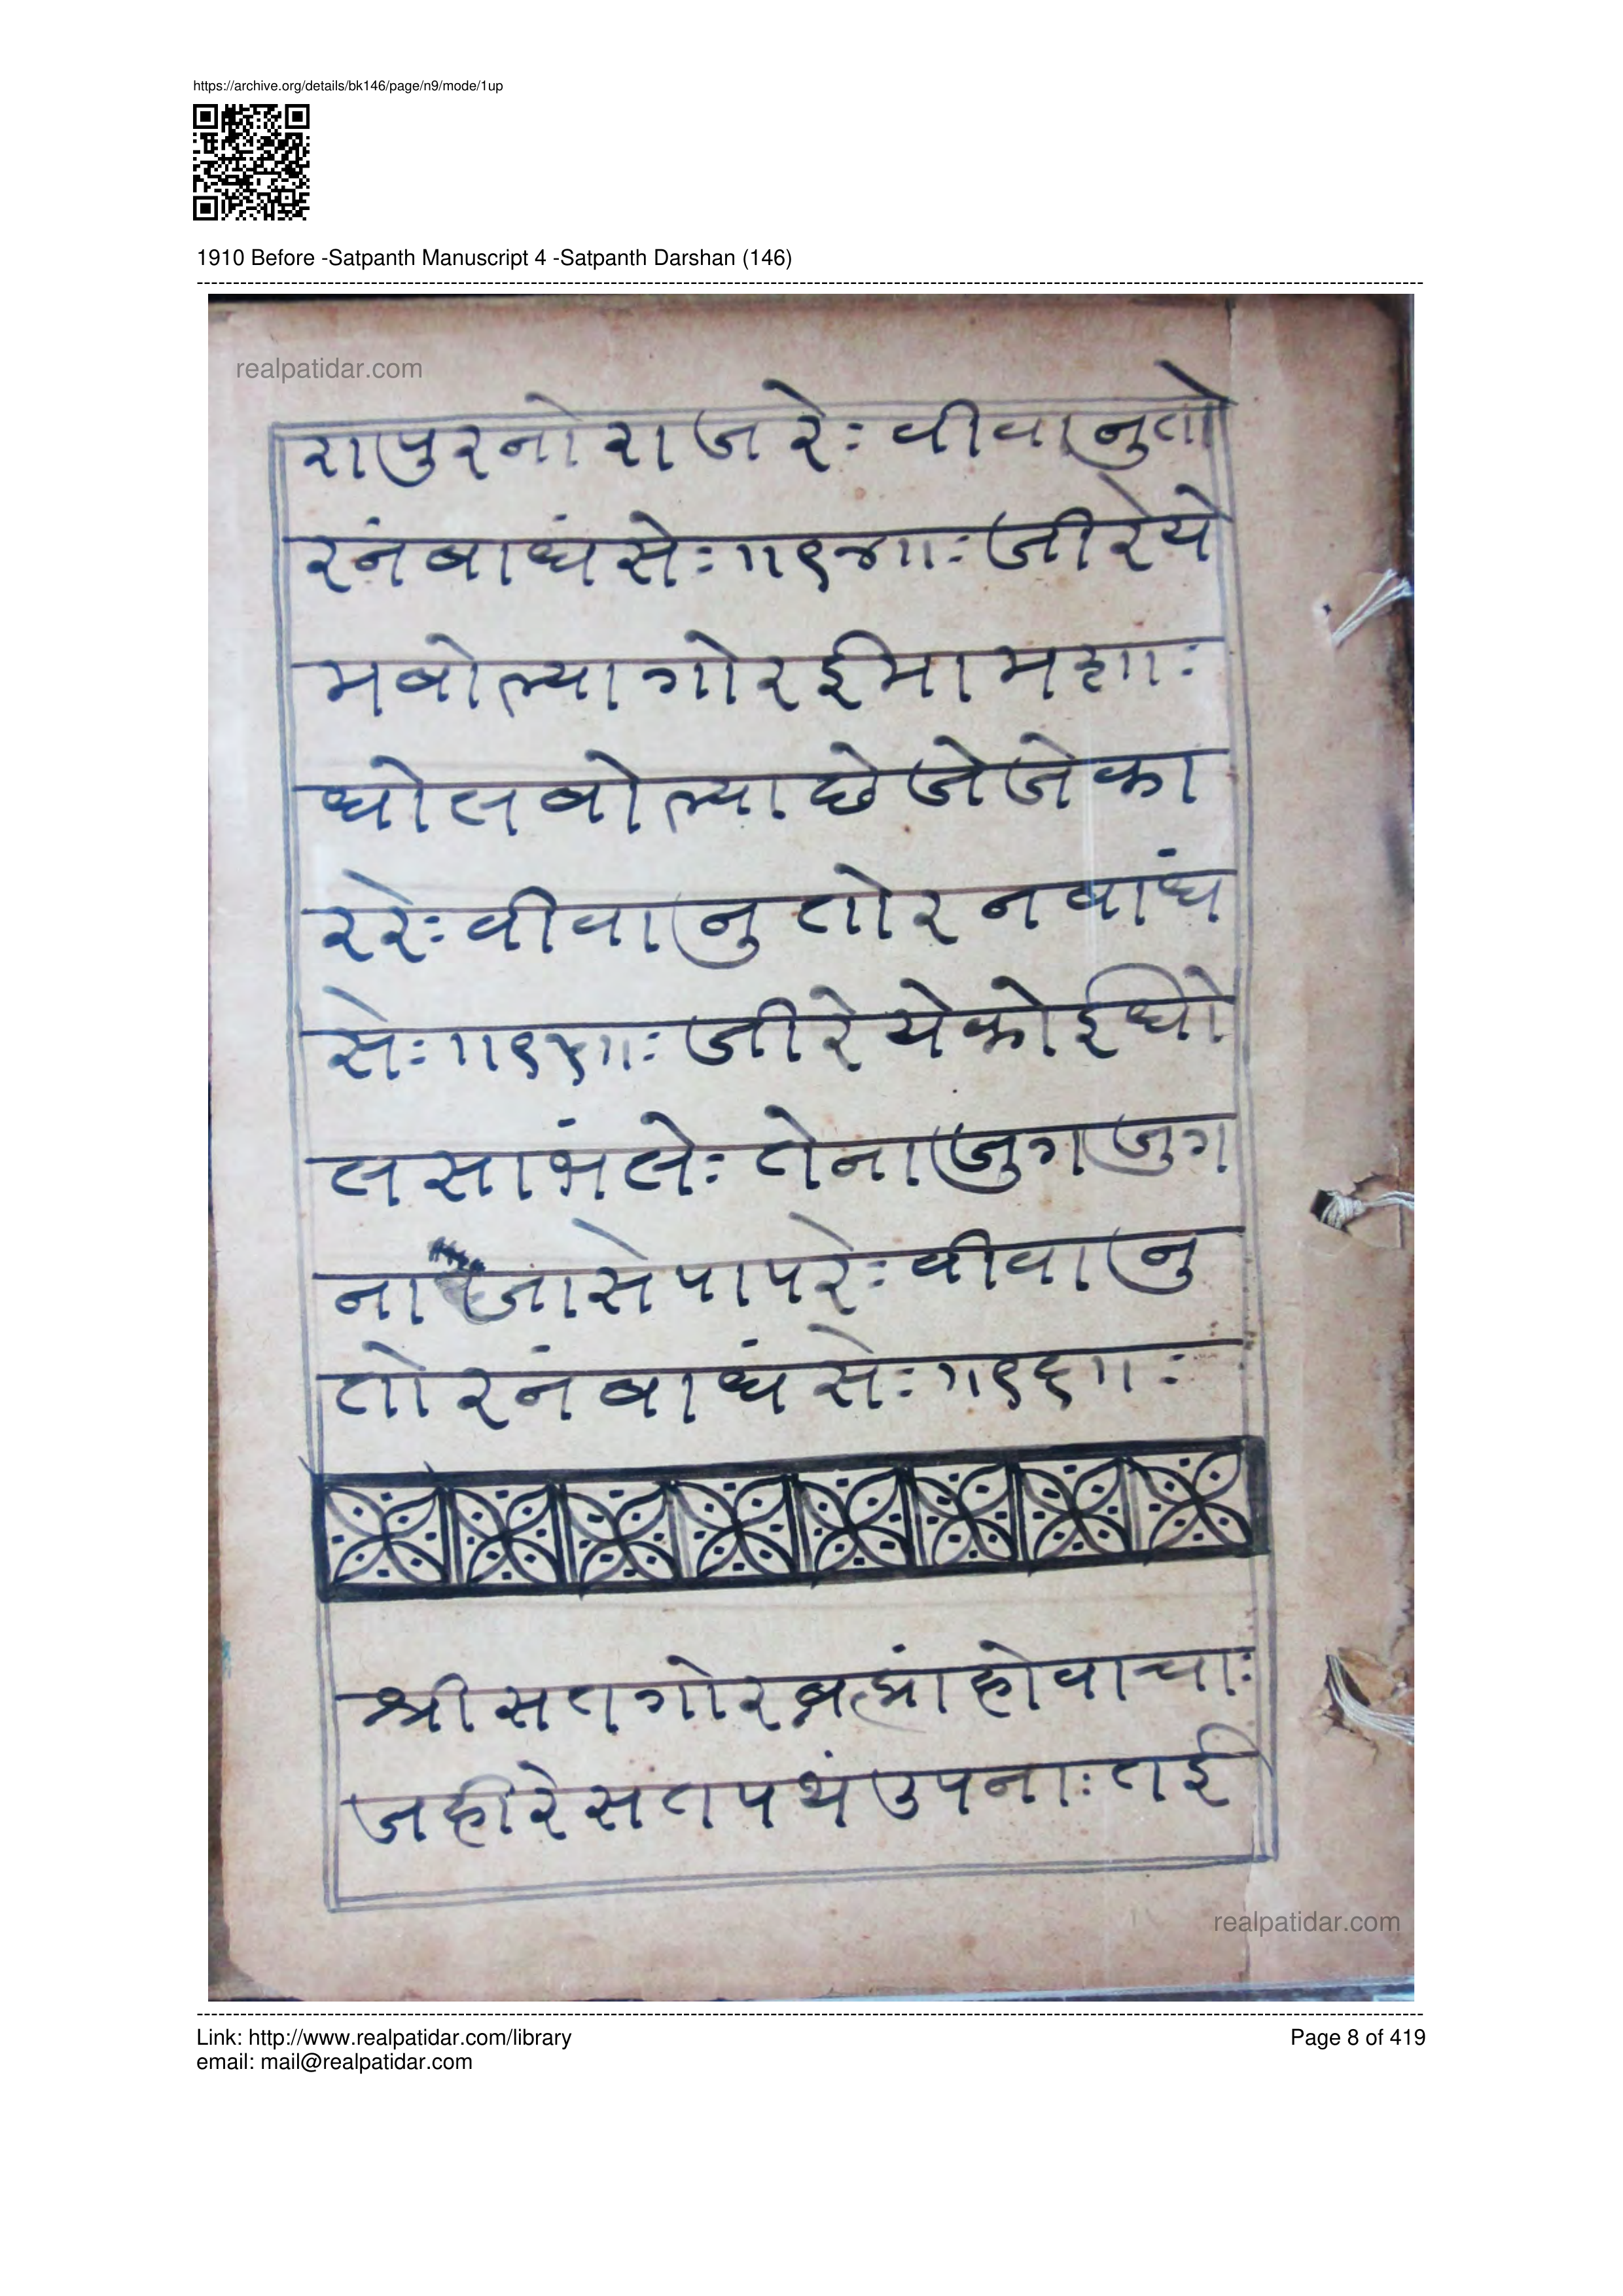 https://archive.org/details/bk146/page/n9/mode/1up
1910 Before -Satpanth Manuscript 4 -Satpanth Darshan (146)
realpatidar.com
रापुरनोराजरेः वीवानुतो
रनंबाधंसेः॥१४॥ः जीरेये
मबोल्यागोरईमामशाः
धोलबोल्याछेजेजेका
ररेः वीवानुतोरनबांध
सेः॥१५॥ः जीरेयेकोईधो
लसाभंलेः तेनाजुगजुग
नाजासेपापरेः वीवानु
तोरनंबाधंसेः॥१६॥ः
श्रीसतगोरब्रह्मांहोवाचाः
जहीरेसतपथंउपनाः तई
realpatidar.com
Link: http://www.realpatidar.com/library
Page 8 of 419
email: mail@realpatidar.com